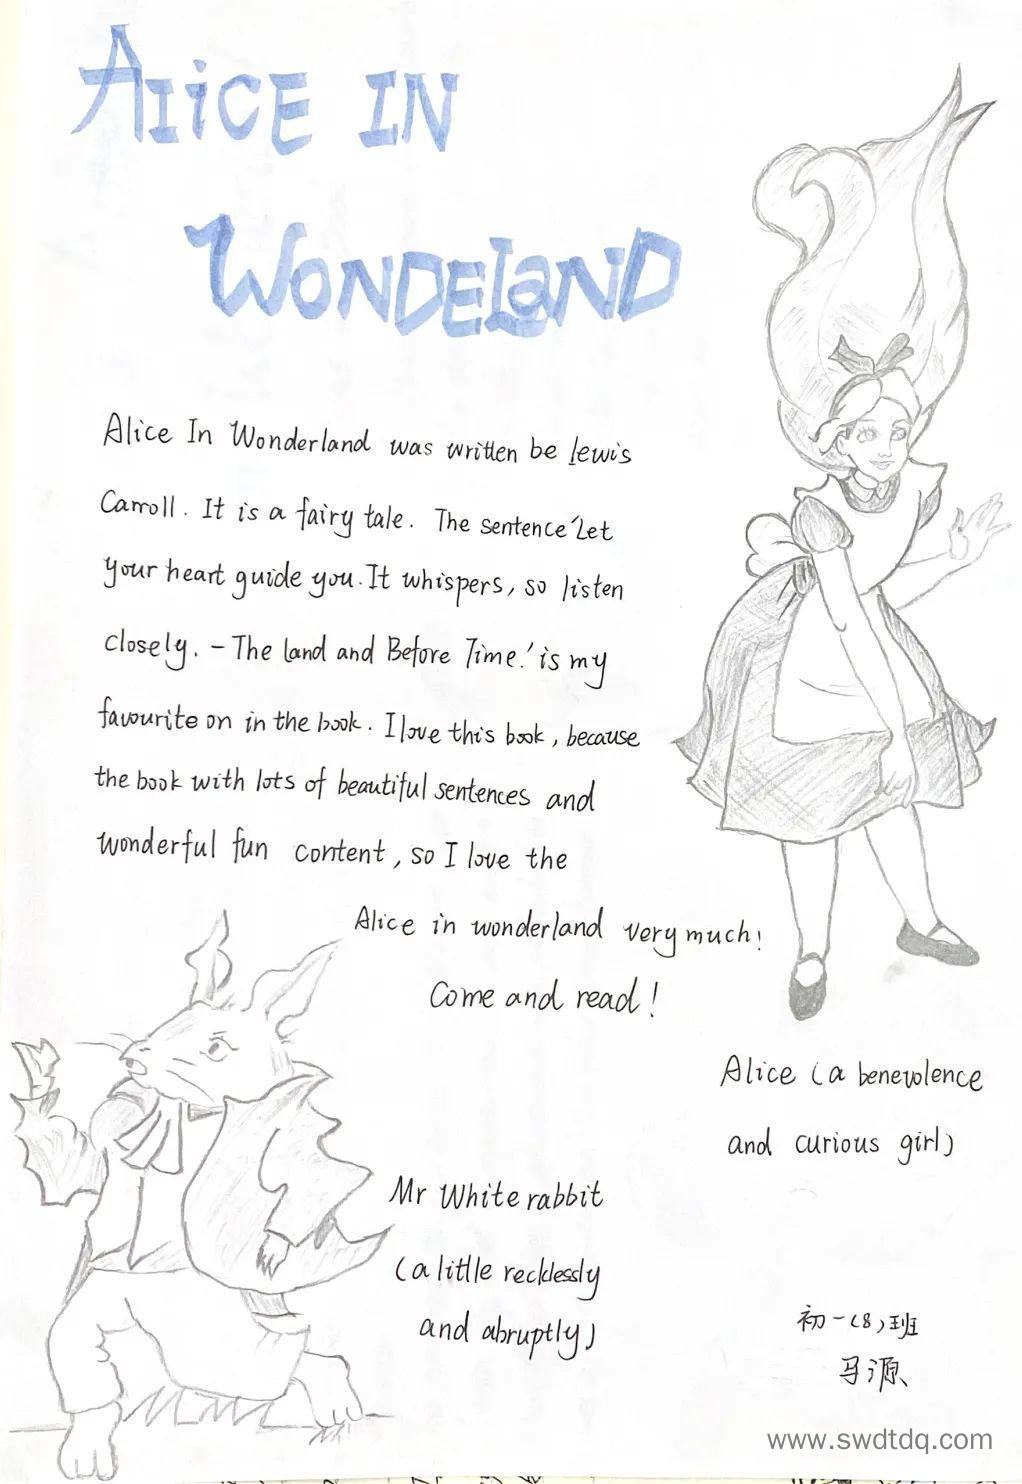 Alice IN
WONDELAND
Alice In Wonderland was written be lewis
Carroll. It is a fairy tale. The sentence "Let
your heart guide you. It whispers, so listen
closely. - The land and Before Time.' is my
favourite on in the book. I love this book, because
the book with lots of beautiful sentences and
wonderful fun content, so I love the
Alice in wonderland very much!
Come and read!
Alice (a benevolence
and curious girl)
Mr White rabbit
(a little recklessly
and abruptly)
初一(8)班
马源
www.swdtdq.com